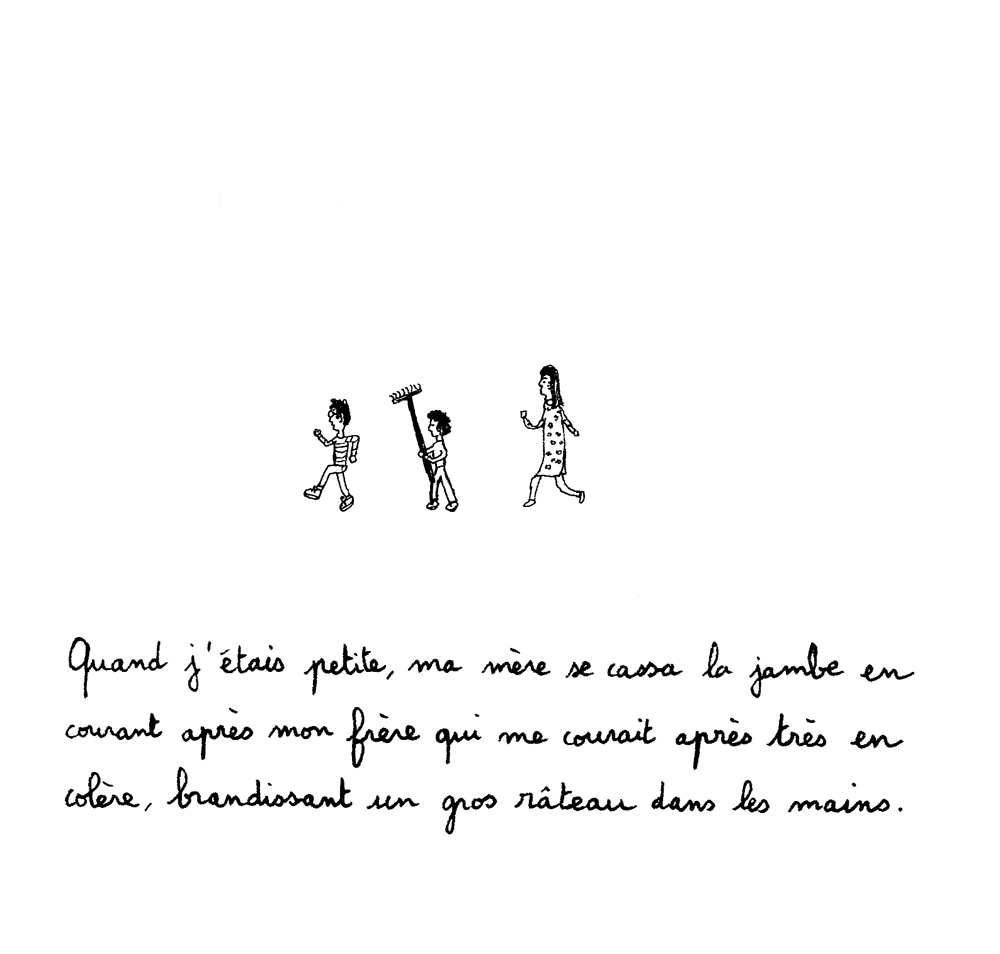 Quand j'étais petite, ma mère se cassa la jambe en
courant après mon frère qui me courait après très en
colère, brandissant un gros râteau dans les mains.